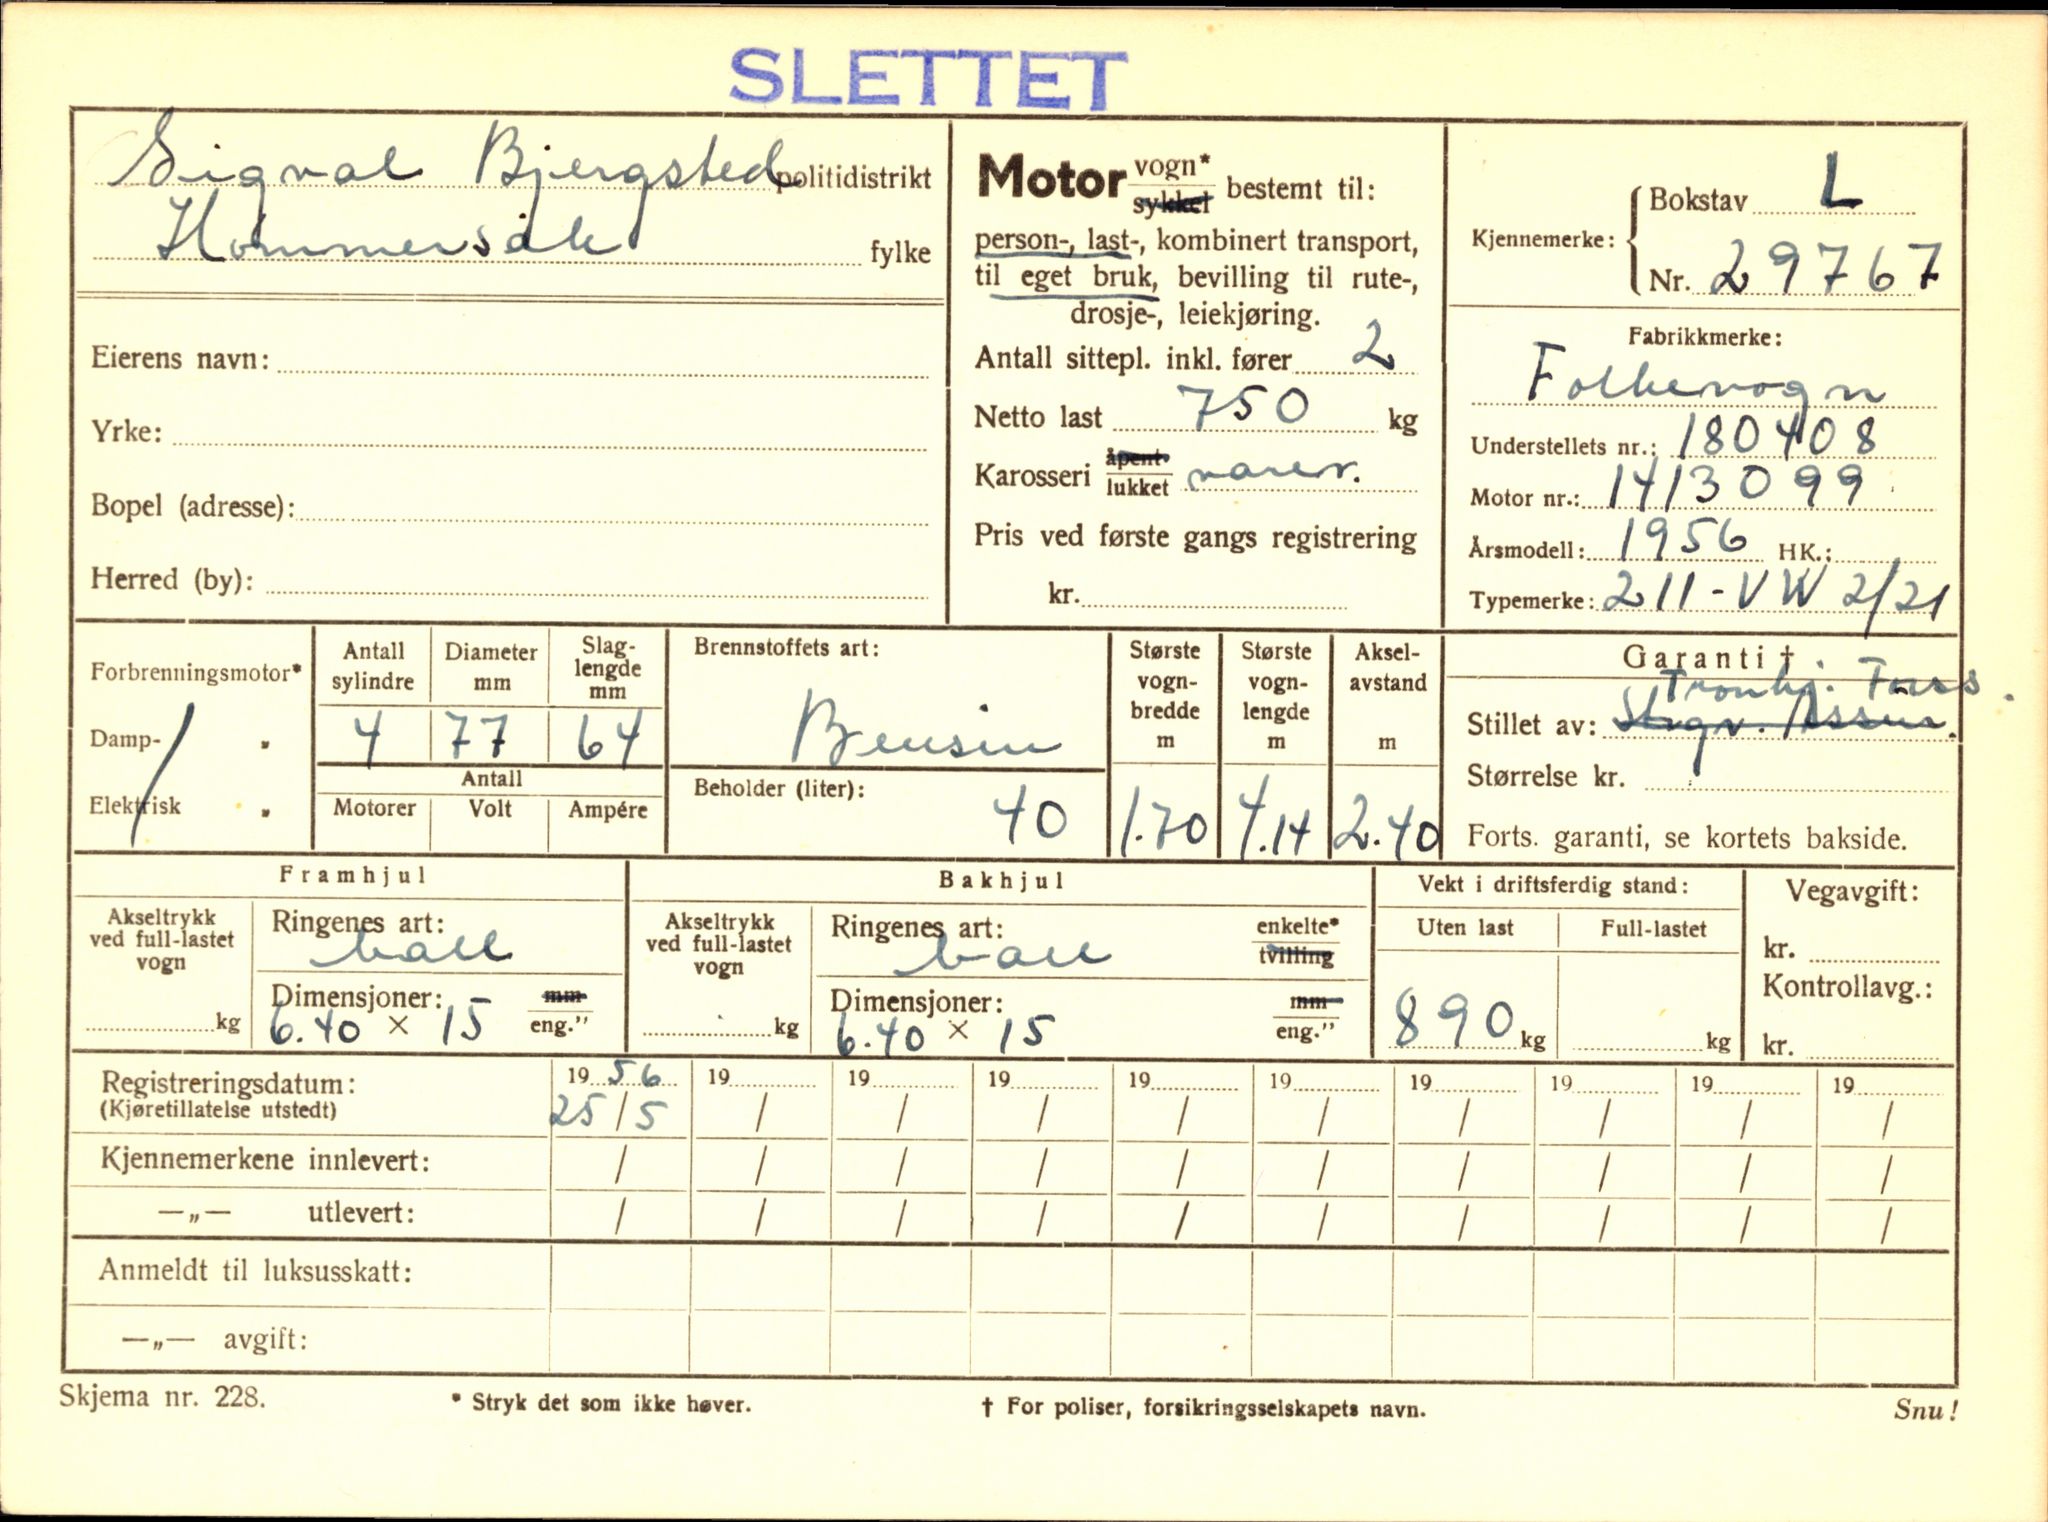 SLETTET
Sigval Bjergsted politidistrikt
Hommersåk fylke
Eierens navn:
Yrke:
Bopel (adresse):
Herred (by):
Motor vogn* sykkel bestemt til:
person-, last-, kombinert transport,
til eget bruk, bevilling til rute-,
drosje-, leiekjøring.
Antall sittepl. inkl. fører 2
Netto last 750 kg
Karosseri åpent lukket varev.
Pris ved første gangs registrering
kr.
Kjennemerke: Bokstav L
Nr. 29767
Fabrikkmerke:
Folkevogn
Understellets nr.: 180408
Motor nr.: 1413099
Årsmodell: 1956 HK.:
Typemerke: 211-VW 2/21
Forbrenningsmotor*
Damp- „
Elektrisk „
Antall sylindre
Diameter mm
Slag-lengde mm
4 77 64
Antall
Motorer Volt Ampére
Brennstoffets art:
Bensin
Beholder (liter):
40
Største vogn-bredde m
1.70
Største vogn-lengde m
4.14
Aksel-avstand m
2.40
Garanti †
Tronhj. Forss.
Stillet av: Sigv.
Størrelse kr.
Forts. garanti, se kortets bakside.
Framhjul
Akseltrykk ved full-lastet vogn
kg
Ringenes art:
ball
Dimensjoner: mm
6.40 × 15 eng.”
Bakhjul
Akseltrykk ved full-lastet vogn
kg
Ringenes art: enkelte*
ball tvilling
Dimensjoner: mm
6.40 × 15 eng.”
Vekt i driftsferdig stand:
Uten last Full-lastet
890 kg kg
Vegavgift:
kr.
Kontrollavg.:
kr.
Registreringsdatum: 19 56 19 19 19 19 19 19 19 19 19
(Kjøretillatelse utstedt) 25/5 / / / / / / / / /
Kjennemerkene innlevert: / / / / / / / / / /
—„— utlevert: / / / / / / / / / /
Anmeldt til luksusskatt:
—„— avgift:
Skjema nr. 228. * Stryk det som ikke høver. † For poliser, forsikringsselskapets navn. Snu!